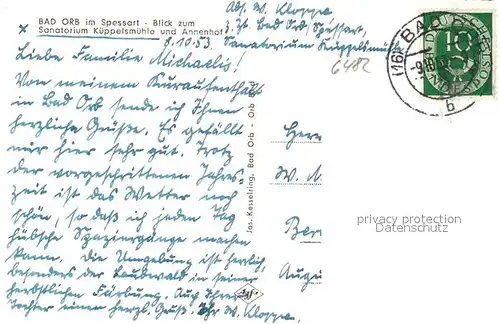 BAD ORB im Spessart - Blick zum
Sanatorium Küppelsmühle und Annenhof
Abs. W. Kloppe
z. Zt. Bad Orb/Spessart,
Sanatorium Küppelsmühle
8.10.53
6482
Liebe Familie Michaelis!
Von meinem Kuraufenthalt
in Bad Orb sende ich Ihnen
herzliche Grüße. Es gefällt
mir hier sehr gut. Trotz
der vorgeschrittenen Jahres-
zeit ist das Wetter noch
schön, so daß ich jeden Tag
hübsche Spaziergänge machen
kann. Die Umgebung ist herrlich,
besonders der Laubwald in seiner
herbstlichen Färbung. Auch Ihrer
Tochter einen herzl. Gruß. Ihr W. Kloppe.
Jos. Kesselring, Bad Orb
Herrn
W. M
Ber
Augu
(16) BAD ORB
b
10
privacy protection
Datenschutz